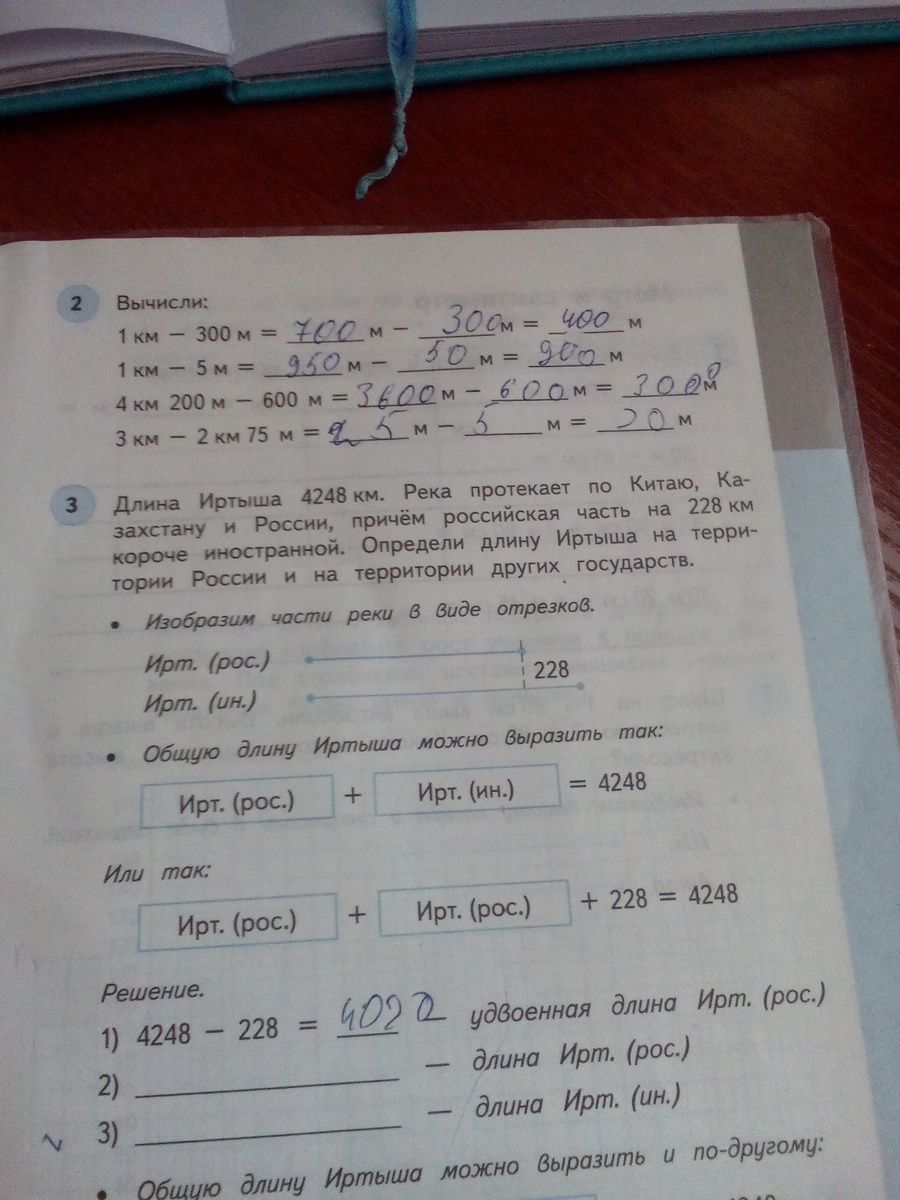 2 Вычисли:
1 км − 300 м = 700 м − 300 м = 400 м
1 км − 5 м = 950 м − 50 м = 900 м
4 км 200 м − 600 м = 3600 м − 600 м = 3000 м
3 км − 2 км 75 м = 25 м − 5 м = 20 м
3 Длина Иртыша 4248 км. Река протекает по Китаю, Ка-
захстану и России, причём российская часть на 228 км
короче иностранной. Определи длину Иртыша на терри-
тории России и на территории других государств.
• Изобразим части реки в виде отрезков.
Ирт. (рос.)
228
Ирт. (ин.)
• Общую длину Иртыша можно выразить так:
Ирт. (рос.) + Ирт. (ин.) = 4248
Или так:
Ирт. (рос.) + Ирт. (рос.) + 228 = 4248
Решение.
1) 4248 − 228 = 4020 удвоенная длина Ирт. (рос.)
2) — длина Ирт. (рос.)
3) — длина Ирт. (ин.)
• Общую длину Иртыша можно выразить и по-другому:
4248